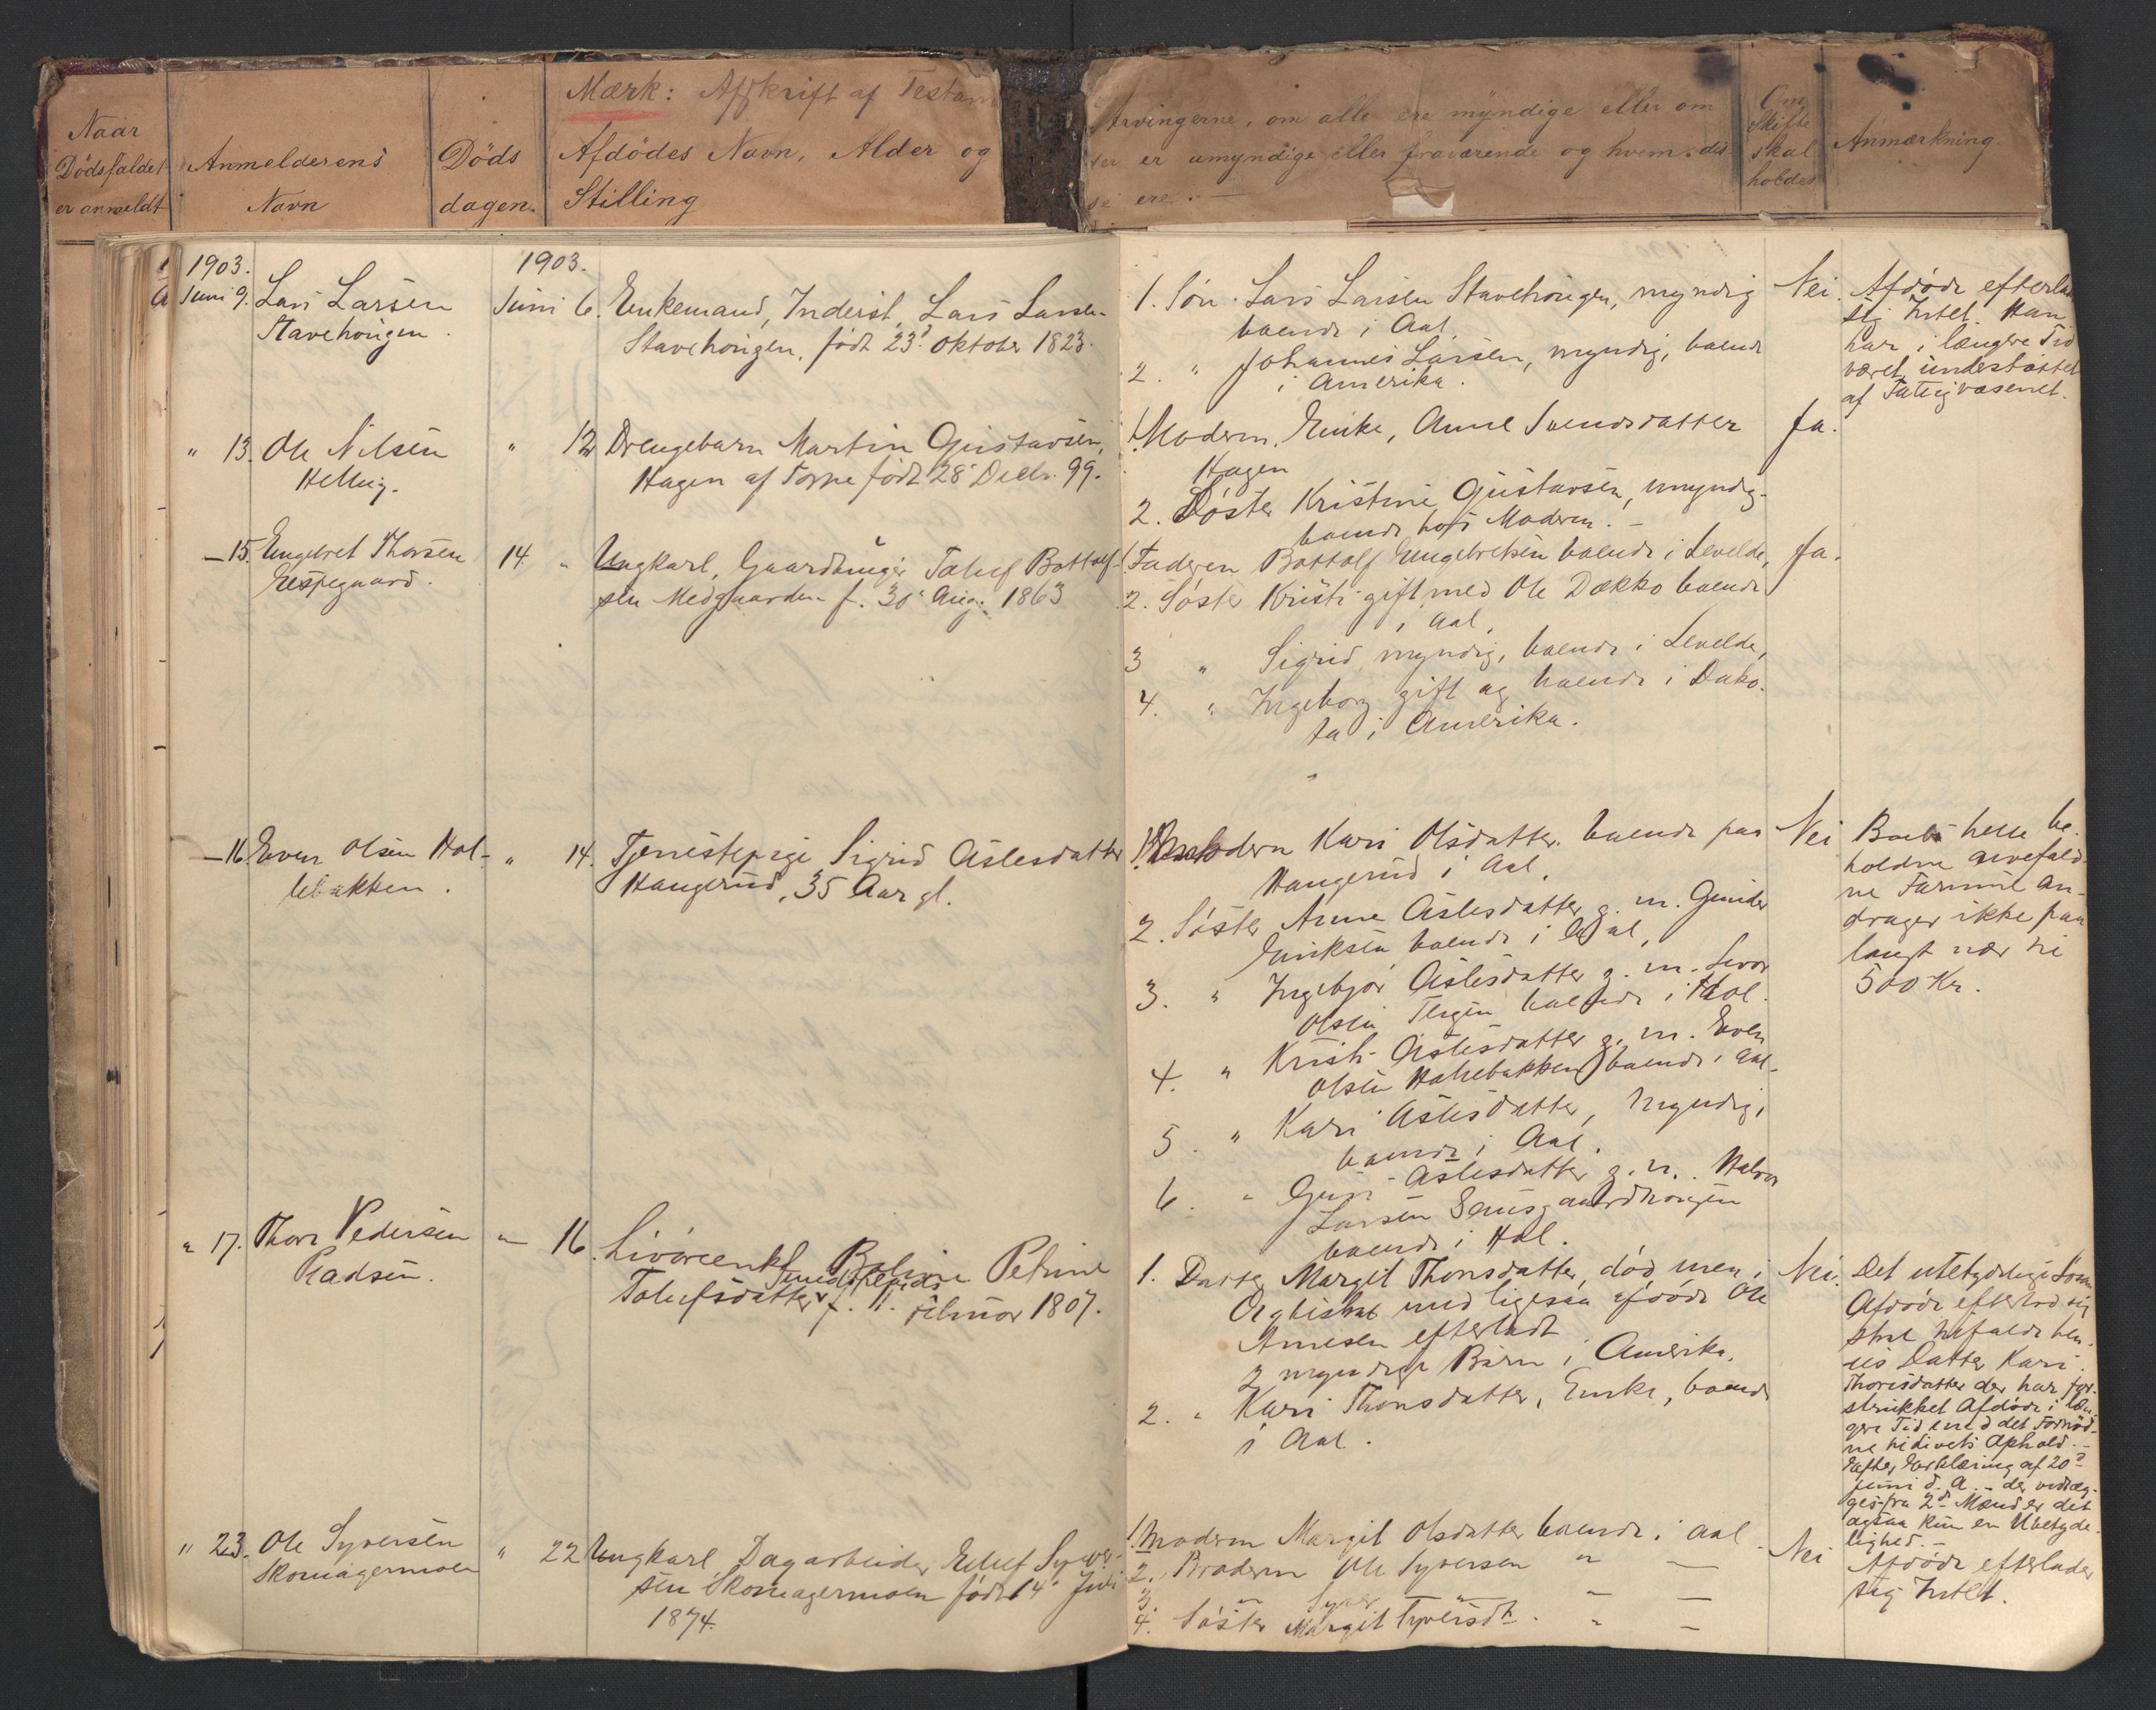 Mærk: Afskrift af Testam
Naar
Dødsfaldet
er anmeldt
Anmelderens
Navn
Døds
dagen.
Afdødes Navn, Alder og
Stilling
Arvingerne, om alle ere myndige eller om
der er umyndige eller fraværende og hvem dis-
se ere. -
Om
Skifte
skal
holdes
Anmærkning.
1903.
Juni 9.
Lars Larsen
Stavehougen.
1903.
Juni 6.
Enkemand, Inderst, Lars Larsen
Stavehougen, født 23d Oktober 1823.
1. Søn Lars Larsen Stavehougen, myndig
boende i Aal.
2. " Johannes Larsen, myndig, boende
i Amerika.
Nei.
Afdøde efterlod
sig Intet. Han
har i længere Tid
været understøttet
af Fattigvæsenet.
" 13.
Ole Nilsen
Helling.
" 12
Drengebarn Martin Gustavsen,
Hagen af Torpe født 28 Decbr. 99.
1. Modern, Enke, Anne Svendsdatter
Hagen
2. Søster Kristine Gustavsen, umyndig
boende hos Modern. -
Ja.
- 15.
Engebret Thorsen
Espegaard.
14 "
Ungkarl, Gaardbruger Tolluf Bottolf-
sen Medgaarden f. 30 Aug. 1863
1. Faderen Bottolf Engebretsen boende i Leveld,
2. Søster Kristi gift med Ole Dække boende
i Aal,
3 " Sigrid, myndig, boende i Leveld,
4. " Ingeborg gift og boende i Dako-
ta i Amerika.
Ja.
- 16.
Even Olsen Hol-
lebakken.
" 14.
Tjenestepige Sigrid Aslesdatter
Haugerud, 35 Aar gl.
1. Modern Kari Olsdatter boende paa
Haugerud i Aal.
2. Søster Anne Aslesdatter g. m. Gunder
Eriksen boende i Aal,
3. " Ingebjør Aslesdatter g. m. Levor
Olsen boende i Hol.
4. " Kristi Aslesdatter g. m. Even
Olsen Hollebakken boende i Aal.
5. " Kari Aslesdatter, myndig,
boende i Aal.
6. " Guri Aslesdatter g. m. Halvor
Larsen
boende i Hol.
Nei
Boets hele be-
holdne arvefald-
ne Formue an-
drager ikke paa
langt nær til
500 Kr.
" 17.
Thore Pedersen
- 16.
Petrine
Tolufsdatter f. 11. Februar 1807.
1. Datter Margit Thorsdatter, død men i
Ægteskab med ligesaa afdøde Ole
Arnesen efterladt
2 myndige Børn i Amerika.
2. " Kari Thorsdatter, Enke, boende
i Aal.
Nei.
Det ubetydelige Som
Afdøde efterlod sig
skal tilfalde hen-
des Datter Kari
Thorsdatter der har for-
strukket Afdøde i læn-
gere Tid med det Fornød-
ne til Livets Ophold. -
Efter Erklæring af 20d
Juni d. A. - der vedlæg-
ges fra 2de Mænd er det
ogsaa kun en Ubetyde-
lighed. -
" 23.
Ole Syversen
Skomagermoen
" 22
Ungkarl, Dagarbeider Elluf Syver-
sen Skomagermoen født 14 Juli
1874.
1. Modern Margit Olsdatter boende i Aal
2. Broderen Ole Syversen " -
3. " Syver " " -
4. Søster Margit Syversdt. " -
Nei
Afdøde efterlader
sig Intet.